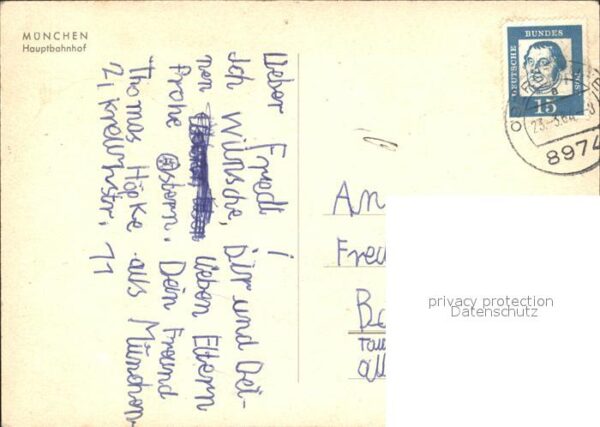 MÜNCHEN
Hauptbahnhof
lieber Fredi!
Ich wünsche, Dir und Dei-
nen lieben Eltern
Frohe Ostern. Dein Freund
Thomas Höpke aus München
21 Kreuthstr. 11
DEUTSCHE BUNDESPOST
15
23.-3.64.
8974
An
Fre
Ba
privacy protection
Datenschutz